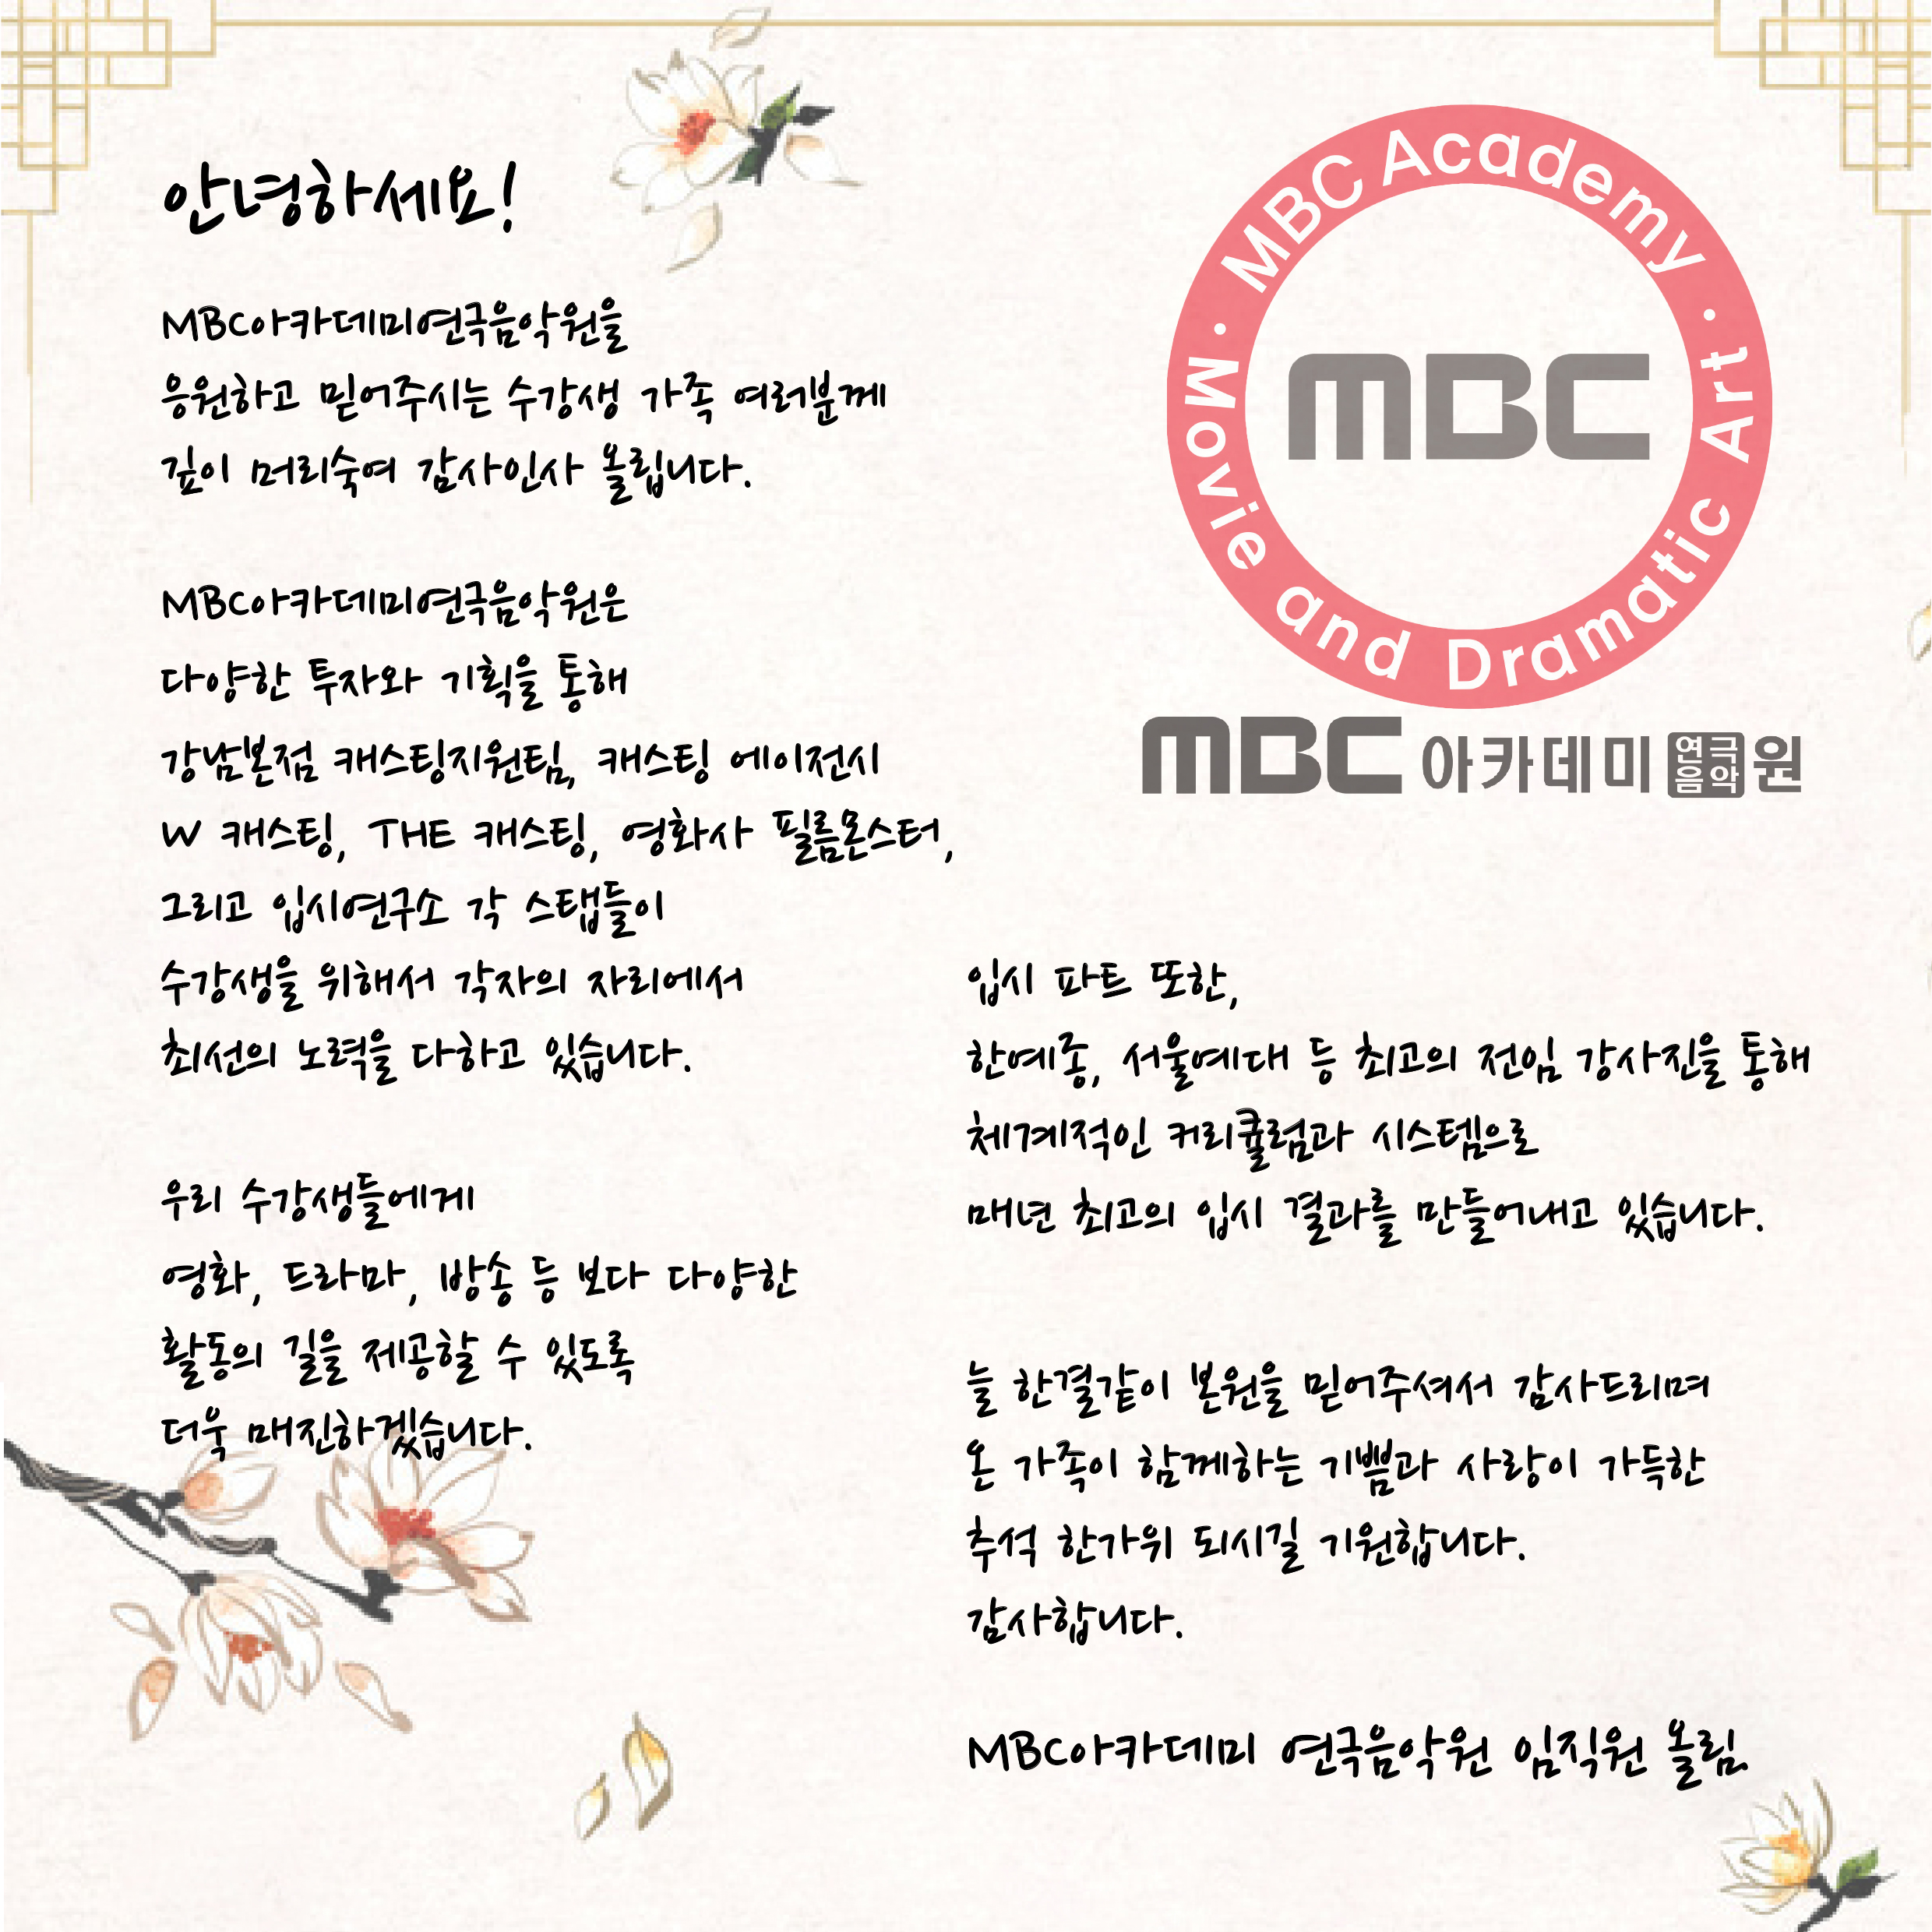 안녕하세요!
MBC아카데미연극음악원을
응원하고 믿어주시는 수강생 가족 여러분께
깊이 머리숙여 감사인사 올립니다.
MBC아카데미연극음악원은
다양한 투자와 기획을 통해
강남본점 캐스팅지원팀, 캐스팅 에이전시
W 캐스팅, THE 캐스팅, 영화사 필름몬스터,
그리고 입시연구소 각 스탭들이
수강생을 위해서 각자의 자리에서
최선의 노력을 다하고 있습니다.
우리 수강생들에게
영화, 드라마, 방송 등 보다 다양한
활동의 길을 제공할 수 있도록
더욱 매진하겠습니다.
· MBC Academy ·
Movie and Dramatic Art
MBC
MBC 아카데미 연극음악원
입시 파트 또한,
한예종, 서울예대 등 최고의 전임 강사진을 통해
체계적인 커리큘럼과 시스템으로
매년 최고의 입시 결과를 만들어내고 있습니다.
늘 한결같이 본원을 믿어주셔서 감사드리며
온 가족이 함께하는 기쁨과 사랑이 가득한
추석 한가위 되시길 기원합니다.
감사합니다.
MBC아카데미 연극음악원 임직원 올림.